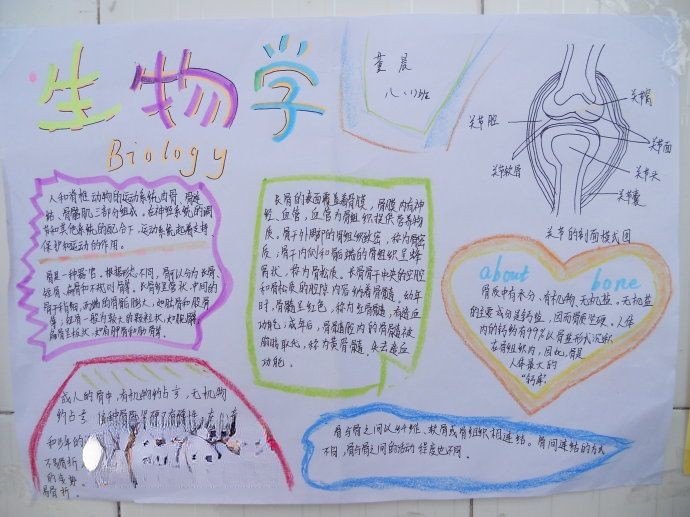 生物学
Biology
董晨
八.(1)班
关节腔
关节软骨
关节窝
关节面
关节头
关节囊
关节的剖面模式图
人和脊椎动物的运动系统由骨、骨连
结、骨骼肌三部分组成。在神经系统的调
节和其他系统的配合下,运动系统起着支持
保护和运动的作用。
骨是一种器官。根据形态不同,骨可以分为长骨、
短骨、扁骨和不规则骨等。长骨呈长状,中间的
骨干稍细,两端的骨骺膨大,如肱骨和股骨
等;短骨一般为较大的颗粒状,如腕骨;
扁骨呈板状,如肩胛骨和肋骨等。
长骨的表面覆盖着骨膜,骨膜内有神
经、血管,血管为骨组织提供营养物
质。骨干外周部的骨组织致密,称为骨密
质;骨干内侧和骨骺端的骨组织呈蜂
窝状,称为骨松质。长骨骨干中央的空腔
和骨松质的腔隙内容纳着骨髓。幼年
时,骨髓呈红色,称为红骨髓,有造血
功能;成年后,骨髓腔内的骨髓被
脂肪取代,称为黄骨髓,失去造血
功能。
about bone
骨质中有水分、有机物、无机盐。无机盐
的主要成分是钙盐,因而骨质坚硬。人体
内的钙约有99%以骨盐形式沉积
在骨组织内,因此,骨是
人体最大的
“钙库”
成人的骨中,有机物约占⅓,无机物
约占⅔
和少年的
不易骨折
的老势
易骨折。
骨与骨之间以纤维、软骨或骨组织相连结。骨间连结的方式
不同,骨与骨之间的活动程度也不同。